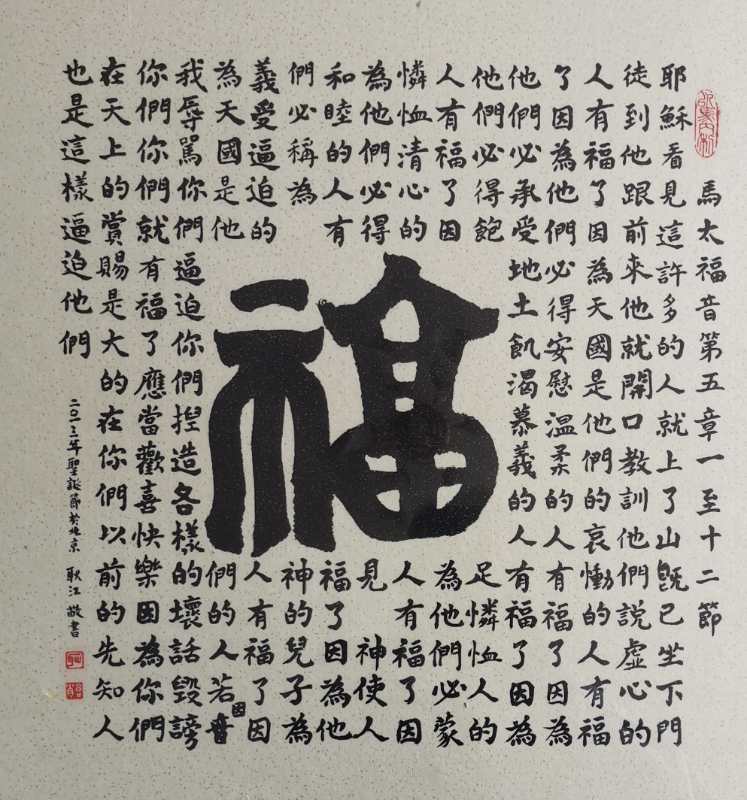 馬太福音第五章一至十二節
耶穌看見這許多的人就上了山旣已坐下門
徒到他跟前來他就開口教訓他們說虛心的
人有福了因為天國是他們的哀慟的人有福
了因為他們必得安慰溫柔的人有福了因為
他們必承受地土飢渴慕義的人有福了因為
他們必得飽足憐恤人的
人有福了因為他們必蒙
憐恤清心的人有福了因
為他們必得見 神使人
和睦的人有福了因為他
們必稱為 神的兒子為
義愛逼迫的人有福了因
為天國是他們的人若因
我辱罵你們逼迫你們捏造各樣的壞話毀謗
你們你們就有福了應當歡喜快樂因為你們
在天上的賞賜是大的在你們以前的先知人
也是這樣逼迫他們
福
二〇一三年聖誕節於北京 耿江 敬書